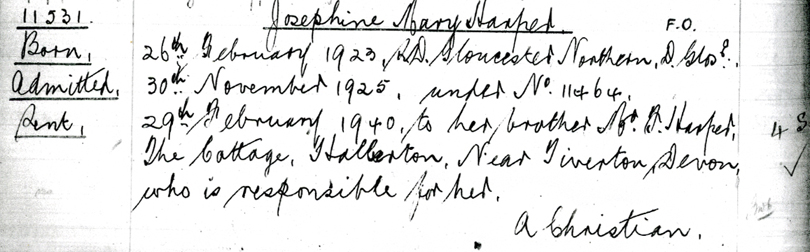 11531. Josephine Mary Harper. F.O.
Born, 26th February 1923, R.D. Gloucester Northern, D. Glos?.
Admitted, 30th November 1925, under No. 11464.
Sent, 29th February 1940, to her brother Mr. F. Harper, 4 S
The Cottage, Halberton, Near Tiverton, Devon, ✓
who is responsible for her.
A Christian.